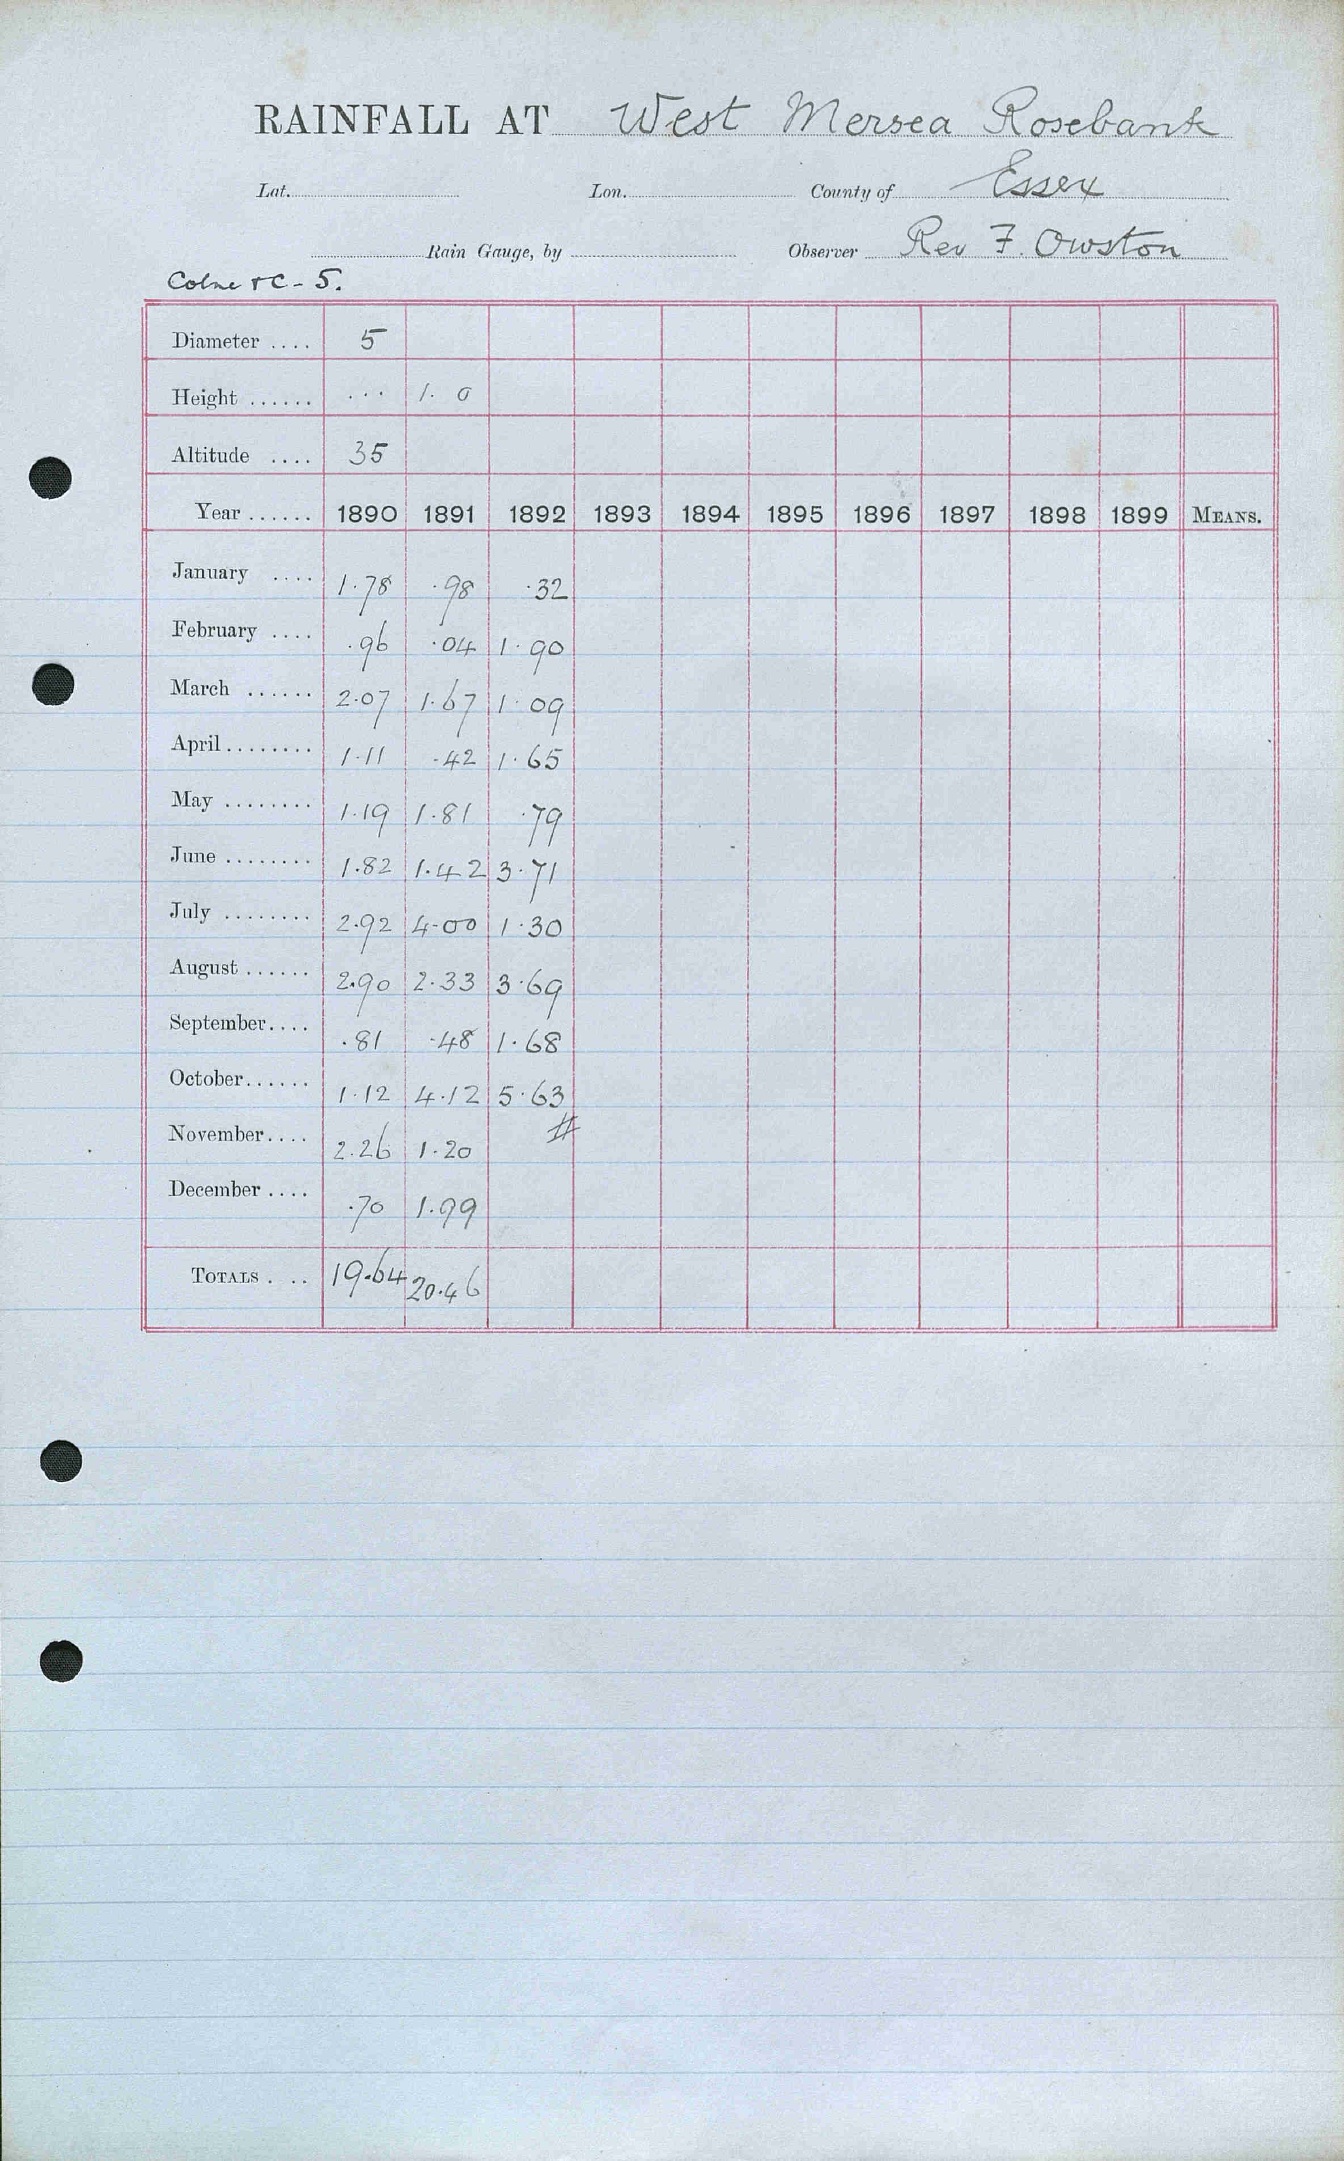 RAINFALL AT West Mersea Rosebank
Lat. Lon. County of Essex
Rain Gauge, by Observer Rev F. Owston
Colne & C - 5.
Diameter .... 5
Height ...... ... 1. 0
Altitude .... 35
Year ...... 1890 1891 1892 1893 1894 1895 1896 1897 1898 1899 MEANS.
January .... 1.78 .98 .32
February .... .96 .04 1.90
March ...... 2.07 1.67 1.09
April ........ 1.11 .42 1.65
May ........ 1.19 1.81 .79
June ........ 1.82 1.42 3.71
July ........ 2.92 4.00 1.30
August ...... 2.90 2.33 3.69
September.... .81 .48 1.68
October...... 1.12 4.12 5.63
November.... 2.26 1.20 #
December .... .70 1.99
TOTALS . .. 19.64 20.46